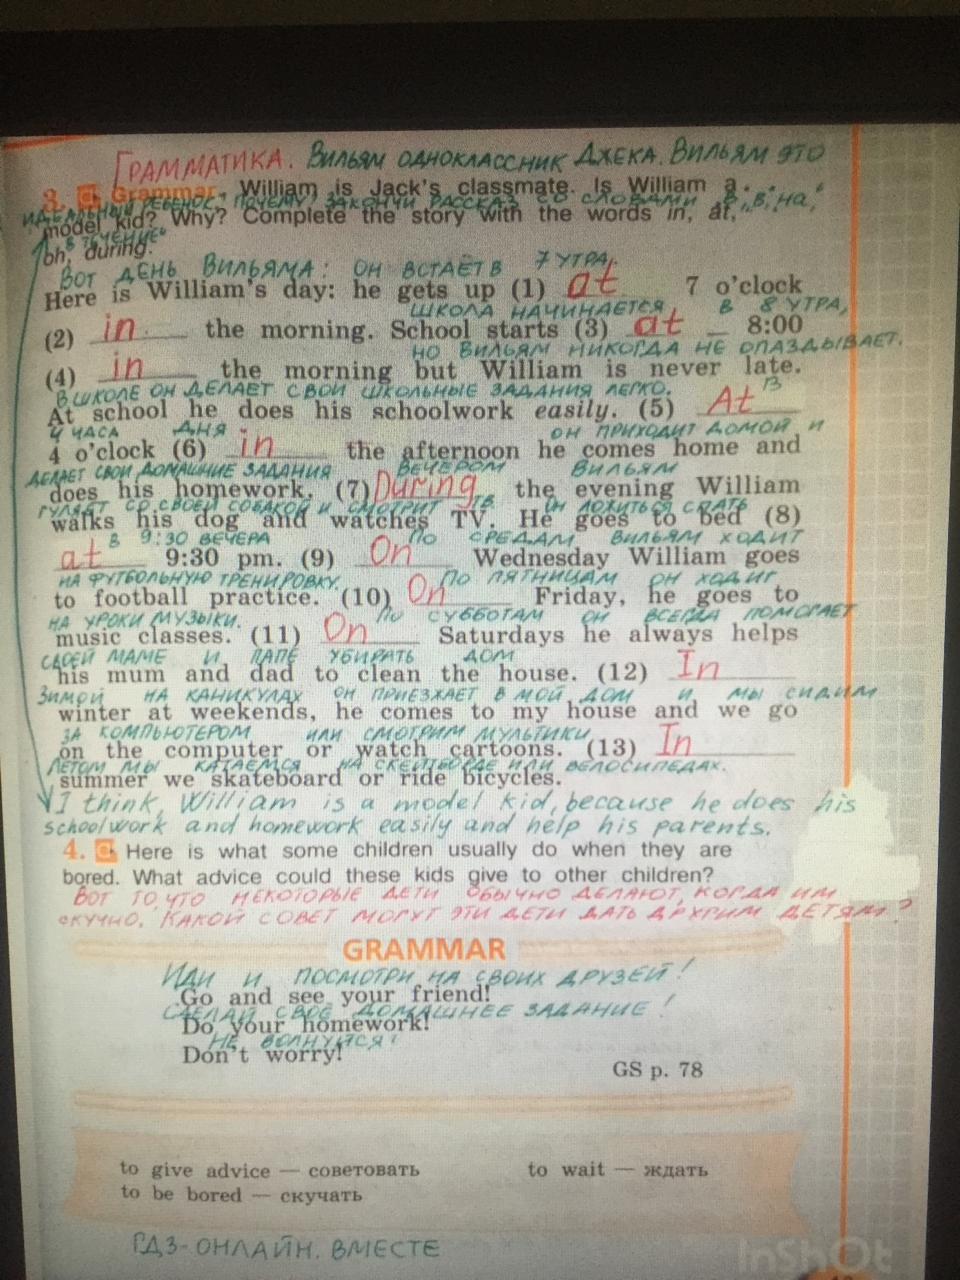 ГРАММАТИКА. ВИЛЬЯМ ОДНОКЛАССНИК ДЖЕКА. ВИЛЬЯМ ЭТО
3. Grammar. William is Jack's classmate. Is William a
ИДЕАЛЬНЫЙ РЕБЁНОК? ПОЧЕМУ? ЗАКОНЧИ РАССКАЗ СО СЛОВАМИ „В", „В", „НА",
model kid? Why? Complete the story with the words in, at,
„В ТЕЧЕНИЕ"
on, during.
ВОТ ДЕНЬ ВИЛЬЯМА: ОН ВСТАЁТ В 7 УТРА.
Here is William's day: he gets up (1) at 7 o'clock
ШКОЛА НАЧИНАЕТСЯ В 8 УТРА,
(2) in the morning. School starts (3) at 8:00
НО ВИЛЬЯМ НИКОГДА НЕ ОПАЗДЫВАЕТ.
(4) in the morning but William is never late.
В ШКОЛЕ ОН ДЕЛАЕТ СВОИ ШКОЛЬНЫЕ ЗАДАНИЯ ЛЕГКО. В
At school he does his schoolwork easily. (5) At
4 ЧАСА ДНЯ ОН ПРИХОДИТ ДОМОЙ И
4 o'clock (6) in the afternoon he comes home and
ДЕЛАЕТ СВОИ ДОМАШНИЕ ЗАДАНИЯ ВЕЧЕРОМ ВИЛЬЯМ
does his homework. (7) During the evening William
ГУЛЯЕТ СО СВОЕЙ СОБАКОЙ И СМОТРИТ ТВ. ОН ЛОЖИТЬСЯ СПАТЬ
walks his dog and watches TV. He goes to bed (8)
В 9:30 ВЕЧЕРА ПО СРЕДАМ ВИЛЬЯМ ХОДИТ
at 9:30 pm. (9) On Wednesday William goes
НА ФУТБОЛЬНУЮ ТРЕНИРОВКУ. ПО ПЯТНИЦАМ ОН ХОДИТ
to football practice. (10) On Friday, he goes to
НА УРОКИ МУЗЫКИ. ПО СУББОТАМ ОН ВСЕГДА ПОМОГАЕТ
music classes. (11) On Saturdays he always helps
СВОЕЙ МАМЕ И ПАПЕ УБИРАТЬ ДОМ
his mum and dad to clean the house. (12) In
ЗИМОЙ НА КАНИКУЛАХ ОН ПРИЕЗЖАЕТ В МОЙ ДОМ И МЫ СИДИМ
winter at weekends, he comes to my house and we go
ЗА КОМПЬЮТЕРОМ ИЛИ СМОТРИМ МУЛЬТИКИ
on the computer or watch cartoons. (13) In
ЛЕТОМ МЫ КАТАЕМСЯ НА СКЕЙТБОРДЕ ИЛИ ВЕЛОСИПЕДАХ.
summer we skateboard or ride bicycles.
I think, William is a model kid, because he does his
schoolwork and homework easily and help his parents.
4. Here is what some children usually do when they are
bored. What advice could these kids give to other children?
ВОТ ТО, ЧТО НЕКОТОРЫЕ ДЕТИ ОБЫЧНО ДЕЛАЮТ, КОГДА ИМ
СКУЧНО. КАКОЙ СОВЕТ МОГУТ ЭТИ ДЕТИ ДАТЬ ДРУГИМ ДЕТЯМ?
GRAMMAR
ИДИ И ПОСМОТРИ НА СВОИХ ДРУЗЕЙ!
Go and see your friend!
СДЕЛАЙ СВОЕ ДОМАШНЕЕ ЗАДАНИЕ!
Do your homework!
НЕ ВОЛНУЙСЯ!
Don't worry!
GS p. 78
to give advice — советовать to wait — ждать
to be bored — скучать
ГДЗ-ОНЛАЙН. ВМЕСТЕ
InShOt